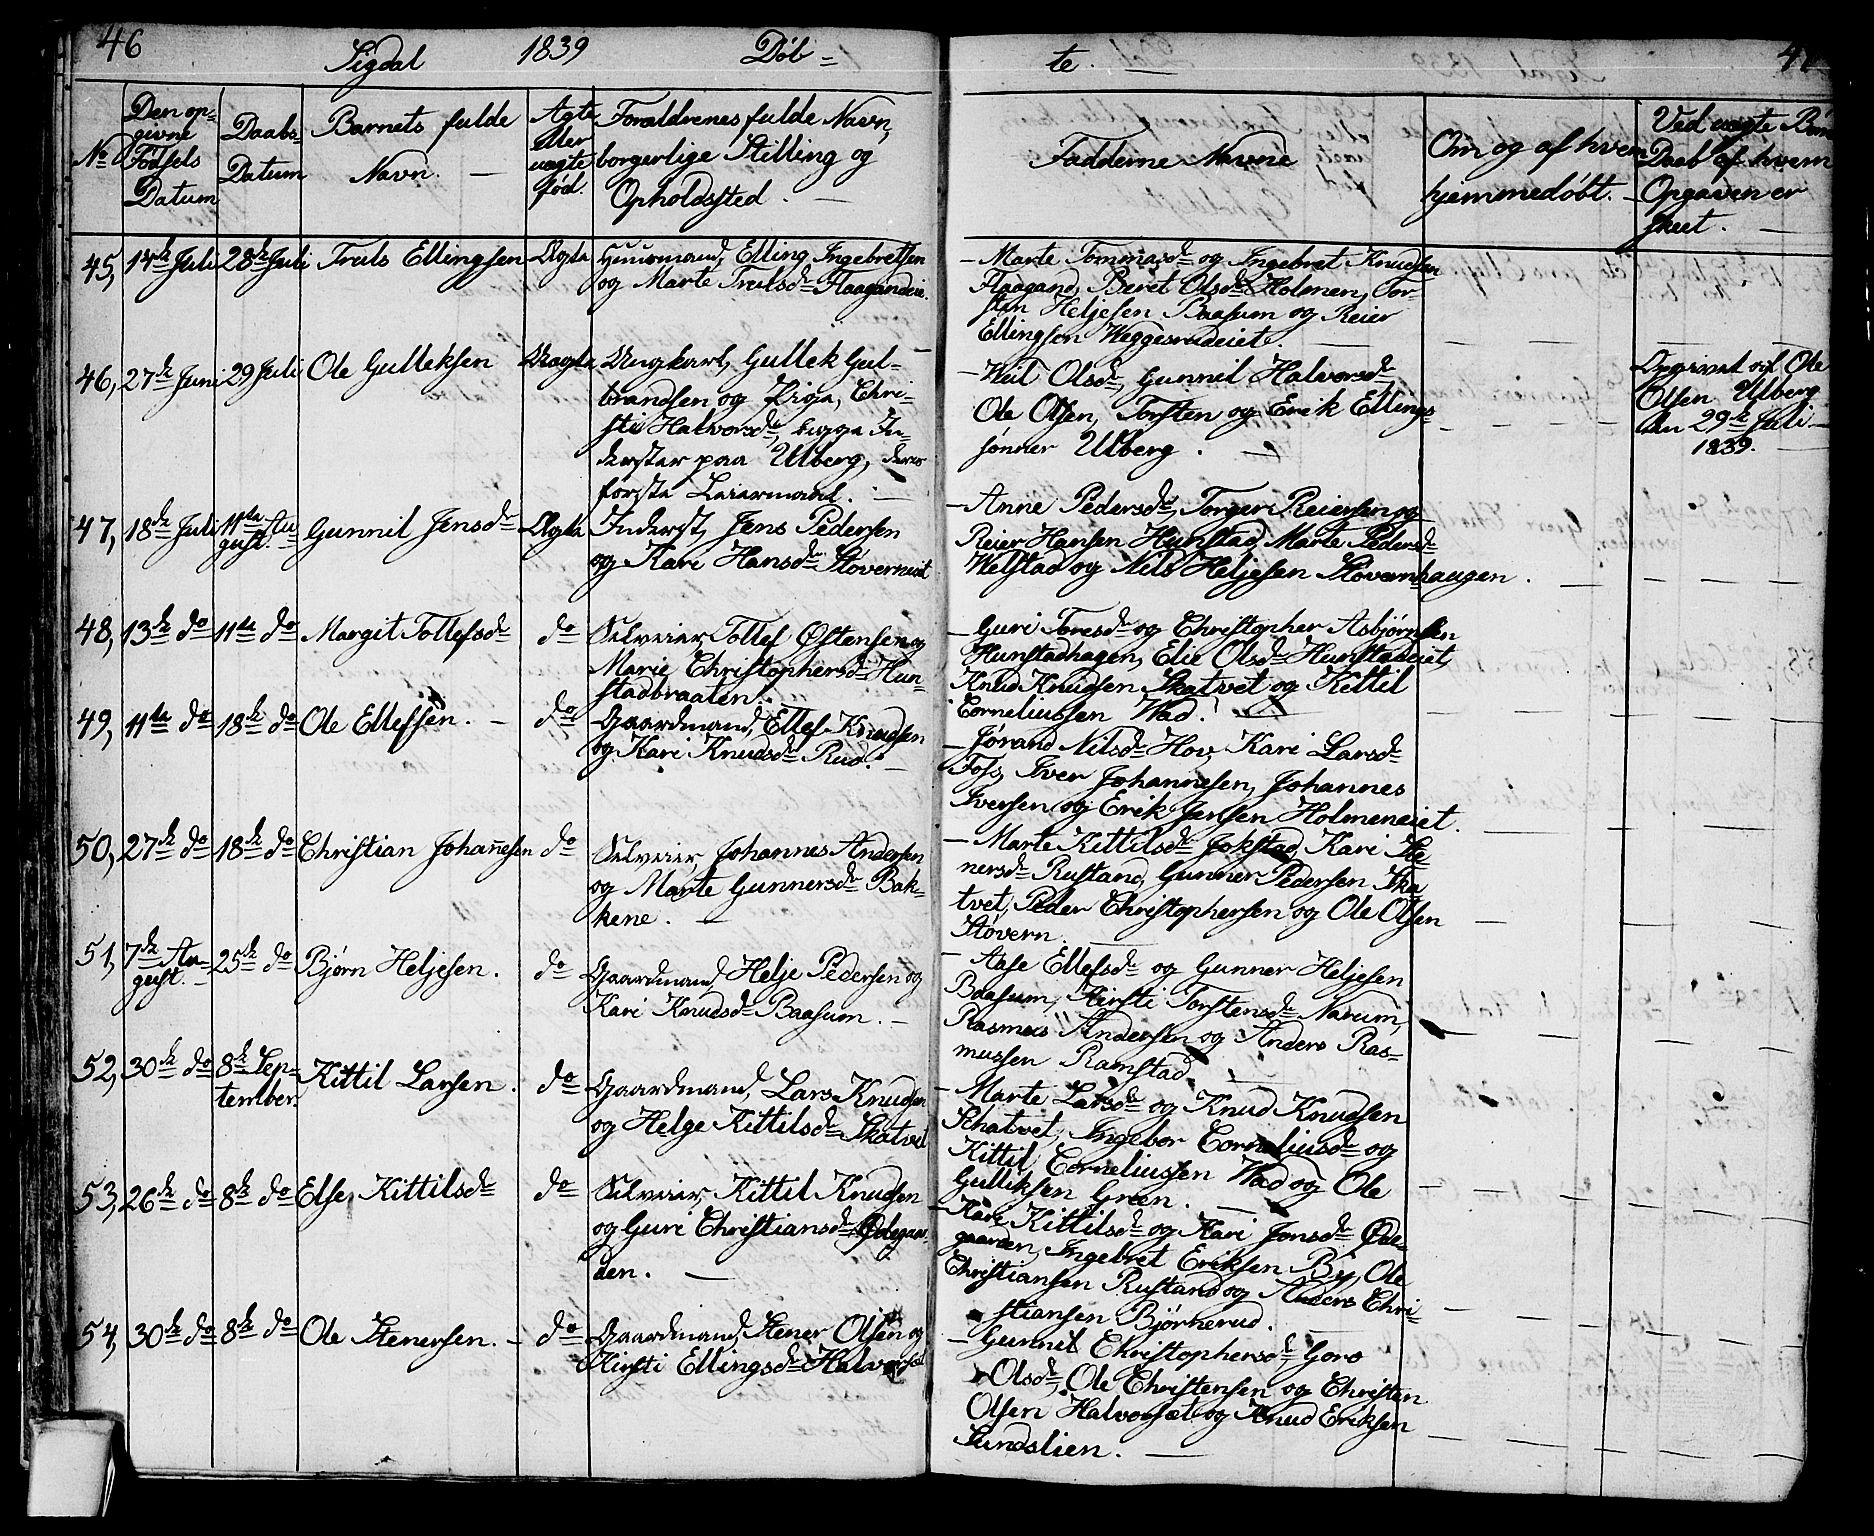 46 Sigdal 1839 Døb-
te. - 47
No | Den op-givne Fødsels Datum | Daabs-Datum | Barnets fulde Navn. - | Ægte eller uægte fød. | Forældrenes fulde Navn, borgerlige Stilling og Opholdssted. -
Faddernes Navne | Om og af hvem hjemmedøbt. - | Ved uægte Børn Daab af hvem Opgaven er skeet. -
45, 14de Juli 28de Juli Truls Ellingsen Ægte Huusmand, Elling Ingebretsen
og Marte Trulsdr Flaagandeie.
- Marte Tommasdr og Ingebret Knudsen
Flaagand, Beret Olsdr Holmen, Tor-
sten Heljesen Baasum og Reier
Ellingsøn Weggesrudeiet.
46, 27de Juni 29 Juli Ole Gulleksen Uægte Ungkarl, Gullek Gul-
brandsen og Pige, Chri-
sti Halvorsdr, begge In-
derster paa Ulberg, deres
første Leiermaal. -
- Olsdr, Gunnil Halvorsdr,
Ole Olsen, Torsten og Erik Ellings-
sønner Ulberg. -
Opgivet af Ole
Olsen Ulberg
den 29de Juli
1839.
47, 18de Juli 11te Au-
gust. Gunnil Jensdr Ægte Inderst, Jens Pedersen
og Kari Hansdr Støverneiet
- Anne Pedersdr, Torger Reiersen og
Reier Hansen Hunstad, Marte Pedersdr
Welstad og Nils Heljesen Stovernhaugen.
48, 13de do 11te do Margit Tollefsdr do Selveier Tollef Østensen og
Marie Christophersdr Hun-
stadbraaten.
- Guri Toresdr og Christopher Asbjørnsen
Hunstadhagen, Elie Olsdr Hunstadeiet,
Knud Knudsen Skatvet og Kittil
Corneliussen Wad.
49, 11te do 18de do Ole Ellefsen. - do Gaardmand, Ellef Knudsen
og Kari Knudsdr Rud. -
- Jørand Nilsdr Hov, Kari Larsdr
Foss, Iver Johannesen, Johannes
Iversen og Erik Jensen Holmeneiet.
50, 27de do 18de do Christian Johañesen do Selveier, Johannes Andersen
og Marte Gunnersdr Bak-
kene. -
- Marte Kittilsdr Jokstad, Kari Ste-
nersdr Rustand, Gunner Pedersen Ska
tvet, Peder Christophersen og Ole Olsen
Støvern.
51, 7de Au-
gust. - 25de do Bjørn Heljesen. do Gaardmand, Helje Pedersen og
Kari Knudsdr Baasum. -
- Aase Ellefsdr og Gunner Heljesen
Baasum, Kirsti Torstensdr Narum,
Rasmus Andersen og Anders Ras-
mussen Ramstad.
52, 30de do 8de Sep-
tember. Kittil Larsen. do Gaardmand, Lars Knudsen
og Helge Kittilsdr Skatvet
- Marte Larsdr og Knud Knudsen
Schatvet, Ingebor Corneliusdr og
Kittil Corneliussen Wad og Ole
Gulliksen Green.
53, 26de do 8de do Else Kittilsdr do Selveier, Kittil Knudsen
og Guri Christiansdr Ødegaar-
den. -
- Kari Kittilsdr og Kari Jonsdr Øde-
gaarden, Ingebret Eriksen By, Ole
Christiansen Rustand og Anders Chri-
stiansen Bjørnerud.
54, 30de do 8de do Ole Stenersen. - do Gaardmand, Stener Olsen og
Kirsti Ellingsdr Halvorset
- Gunnil Christophersdr, Goro
Olsdr, Ole Christensen og Christen
Olsen Halvorset og Knud Eriksen
Sundslien. -